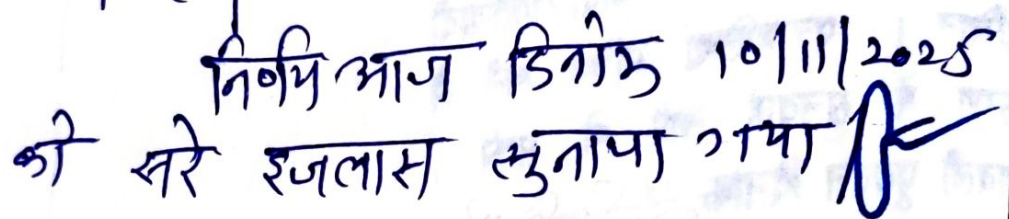 निर्णय आज दिनांक 10/11/2025
को सरे इजलास सुनाया गया